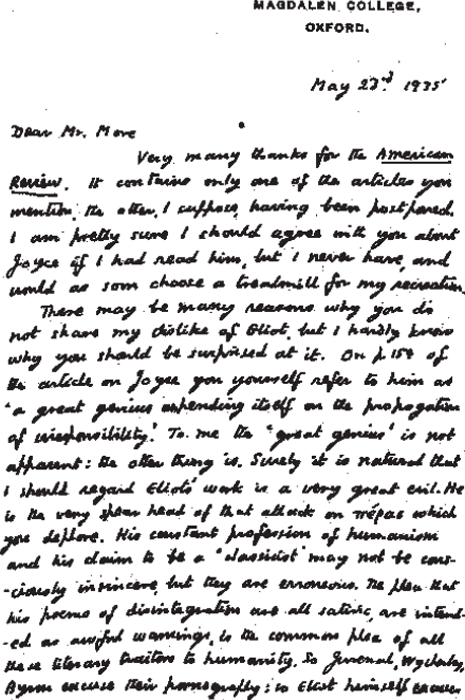 MAGDALEN COLLEGE,
OXFORD.
May 23rd 1935
Dear Mr. More
Very many thanks for the American
Review. It contains only one of the articles you
mention, the other, I suppose, having been postponed.
I am pretty sure I should agree with you about
Joyce if I had read him, but I never have, and
would as soon choose a treadmill for my recreation.
There may be many reasons why you do
not share my dislike of Eliot, but I hardly know
why you should be surprised at it. On p. 154 of
the article on Joyce you yourself refer to him as
'a great genius expending itself on the propagation
of irresponsibility.' To me the 'great genius' is not
apparent: the other thing is. Surely it is natural that
I should regard Eliot's work as a very great evil. He
is the very spear head of that attack on πέρας which
you deplore. His constant profession of humanism
and his claim to be a 'classicist' may not be cons-
-ciously insincere, but they are erroneous. The plea that
his poems of disintegration are all satiric, are intend-
-ed as awful warnings, is the common plea of all
these literary traitors to humanity. So Juvenal, Wycherley,
Byron excuse their pornography: so Eliot himself excuses